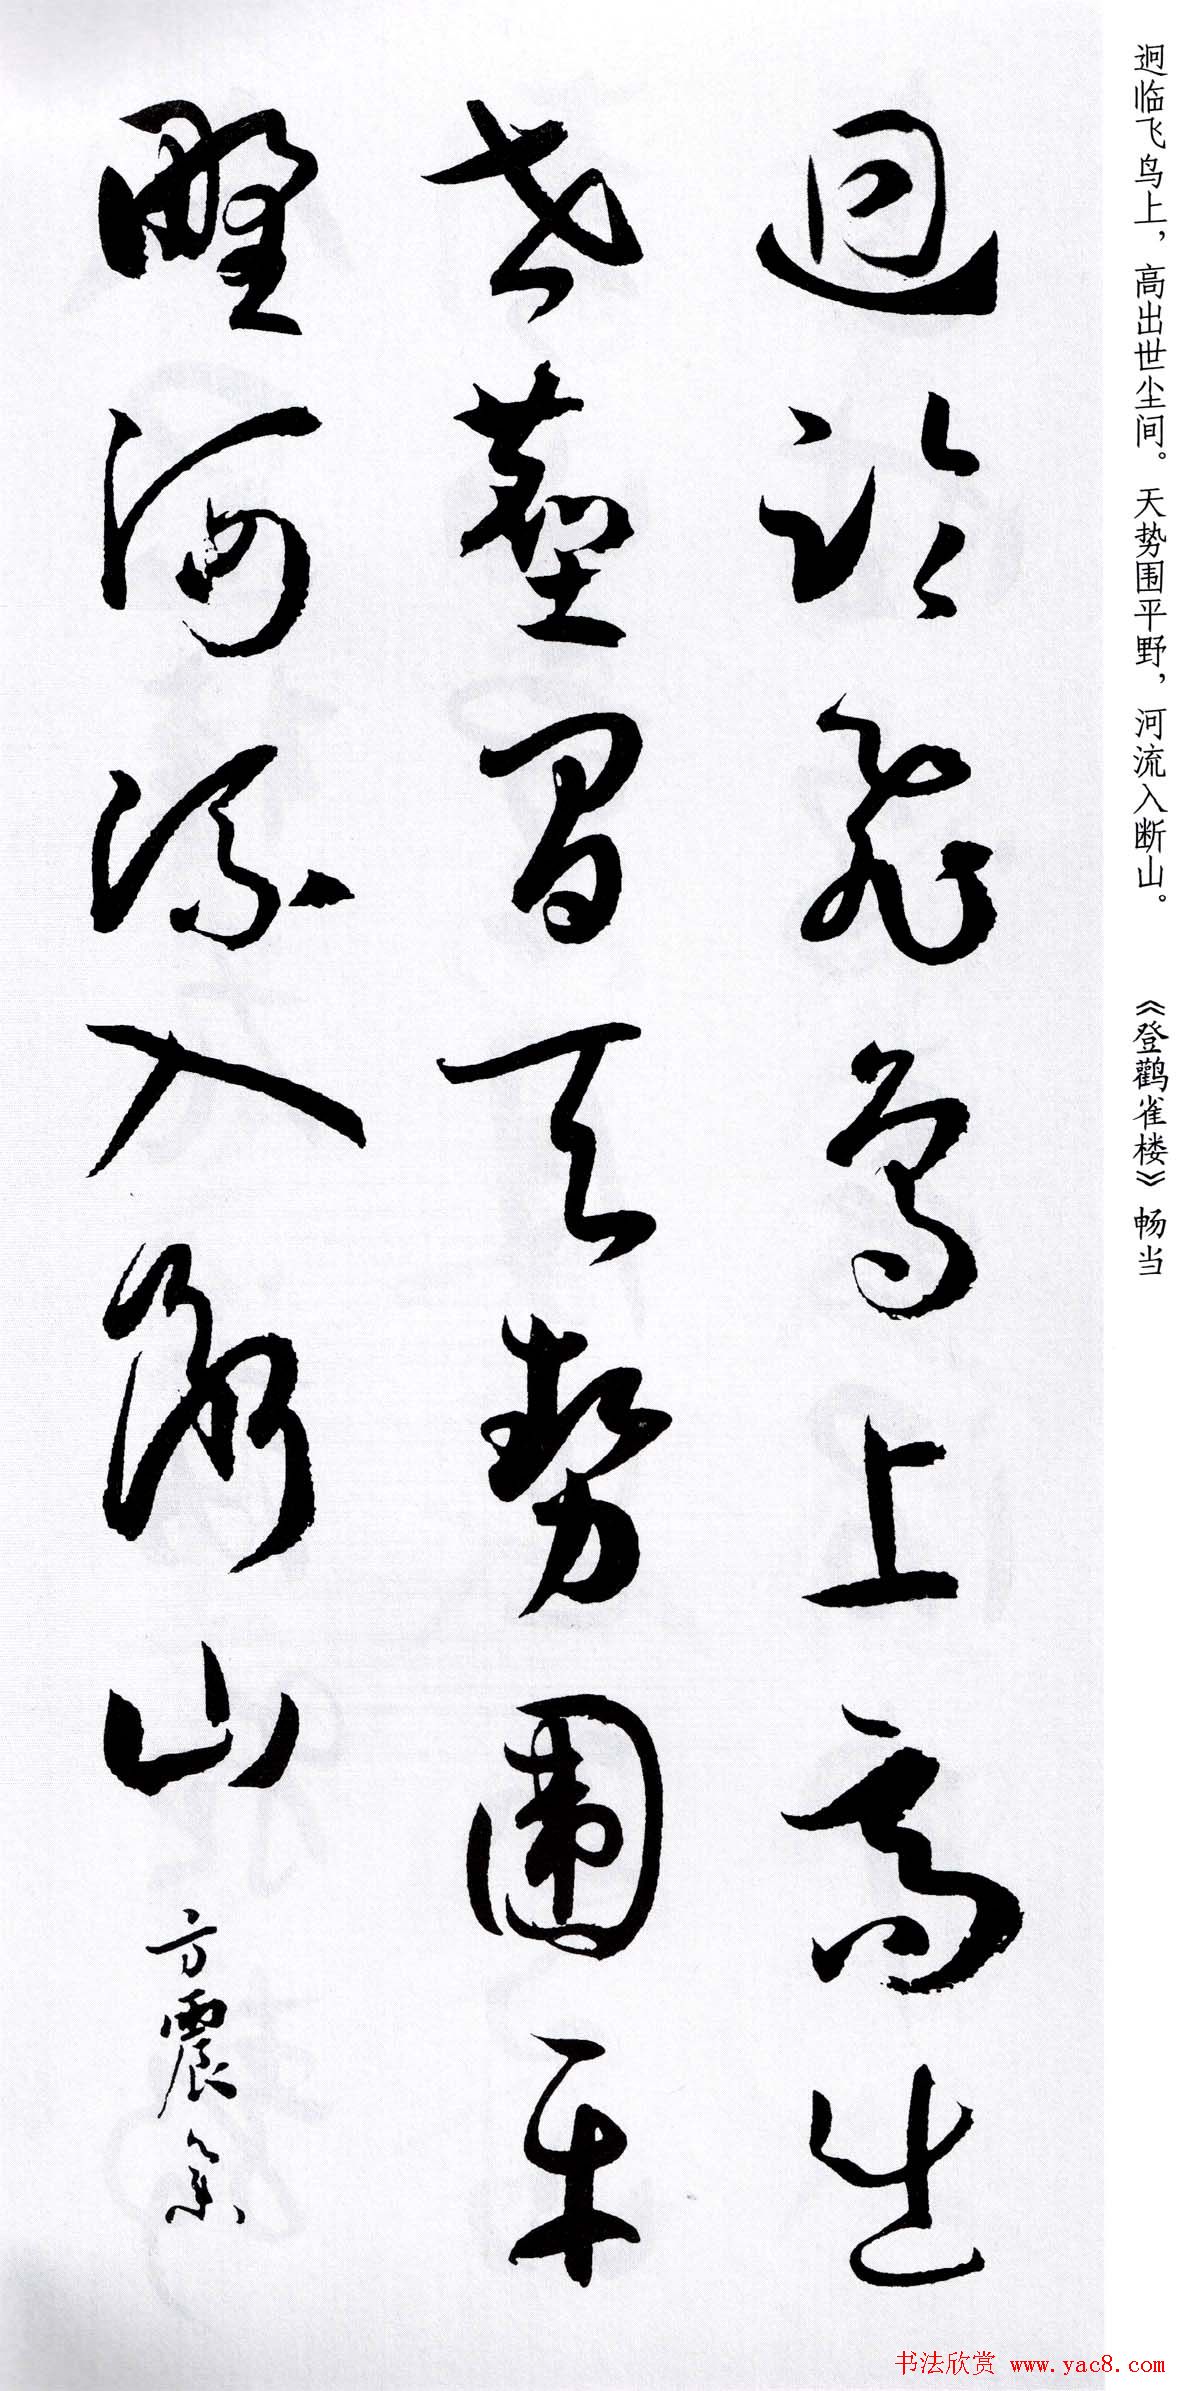 迥临飞鸟上，高出世尘间。天势围平野，河流入断山。 《登鹳雀楼》畅当
迥临飞鸟上高出
世塵間天勢圍平
野河流入断山
方震
书法欣赏 www.yac8.com